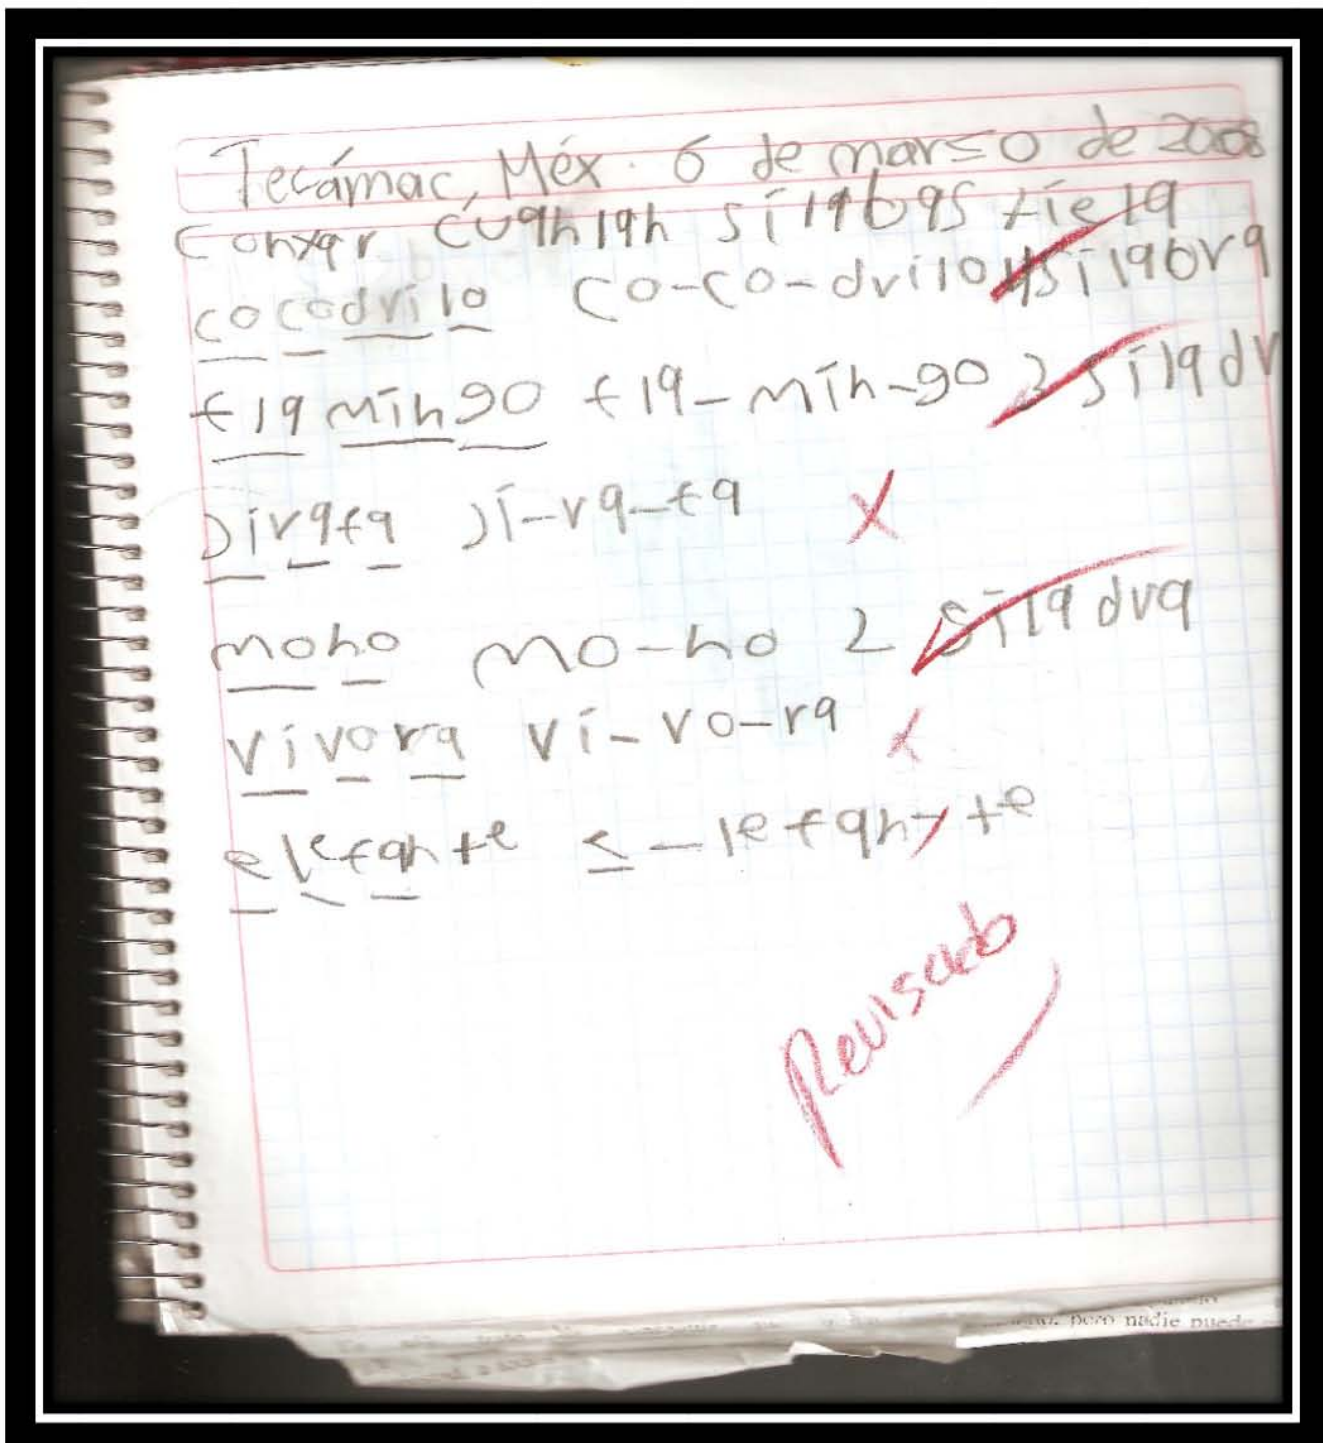 Tecámac, Méx. 6 de marso de 2008
Contar cuahlah sílabas tiela
cocodrilo co-co-drilo 4 sílabra
flamingo fla-min-go 3 síladr
Jirafa Ji-ra-fa X
mono mo-no 2 síladra
vivora vi-vo-ra x
elefante e-lefan-te
Revisado
pero nadie puede